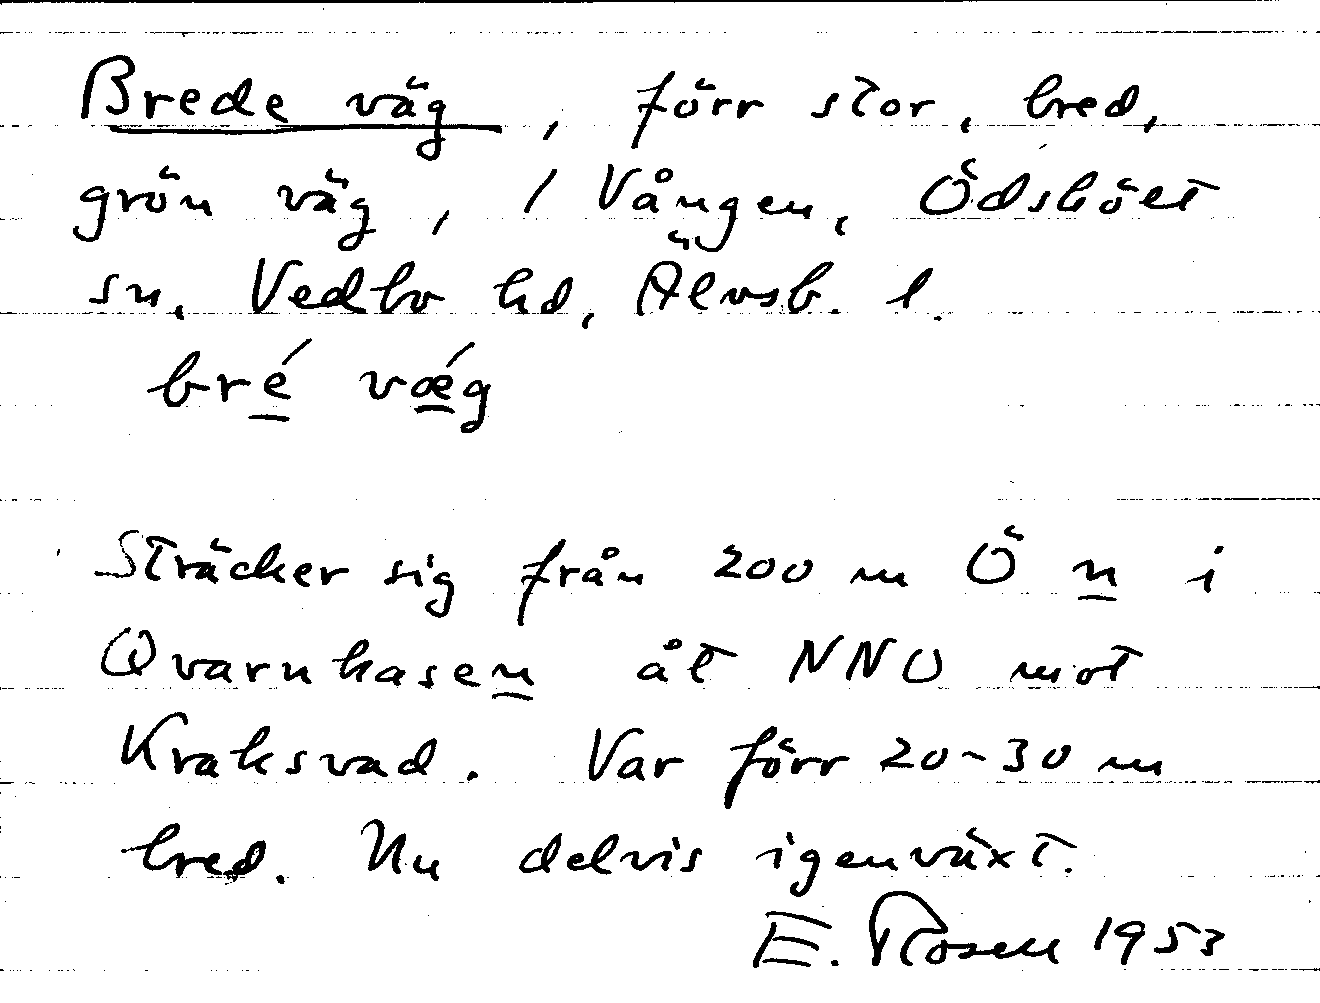 Brede väg, förr stor, bred,
grön väg, / Vången, Ödskölt
sn, Vedbo hd, Älvsb. l.
bré væ´g
Sträcker sig från 200 m Ö n i
Qvarnkasen åt NNO mot
Kraksvad. Var förr 20-30 m
bred. Nu delvis igenväxt.
E. Rosell 1953